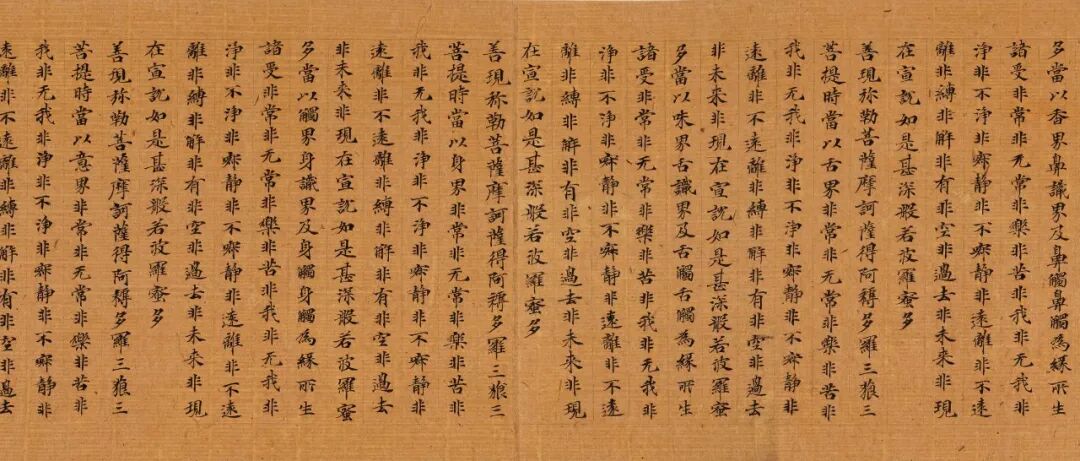 多當以香界鼻識界及鼻觸鼻觸為緣所生
諸受非常非无常非樂非苦非我非无我非
淨非不淨非寂静非不寂静非遠離非不遠
離非縛非解非有非空非過去非未来非現
在宣說如是甚深般若波羅蜜多
善現弥勒菩薩摩訶薩得阿耨多羅三藐三
菩提時當以舌界非常非无常非樂非苦非
我非无我非淨非不淨非寂静非不寂静非
遠離非不遠離非縛非解非有非空非過去
非未来非現在宣說如是甚深般若波羅蜜
多當以味界舌識界及舌觸舌觸為緣所生
諸受非常非无常非樂非苦非我非无我非
淨非不淨非寂静非不寂静非遠離非不遠
離非縛非解非有非空非過去非未来非現
在宣說如是甚深般若波羅蜜多
善現弥勒菩薩摩訶薩得阿耨多羅三藐三
菩提時當以身界非常非无常非樂非苦非
我非无我非淨非不淨非寂静非不寂静非
遠離非不遠離非縛非解非有非空非過去
非未来非現在宣說如是甚深般若波羅蜜
多當以觸界身識界及身觸身觸為緣所生
諸受非常非无常非樂非苦非我非无我非
淨非不淨非寂静非不寂静非遠離非不遠
離非縛非解非有非空非過去非未来非現
在宣說如是甚深般若波羅蜜多
善現弥勒菩薩摩訶薩得阿耨多羅三藐三
菩提時當以意界非常非无常非樂非苦非
我非无我非淨非不淨非寂静非不寂静非
遠離非不遠離非縛非解非有非空非過去